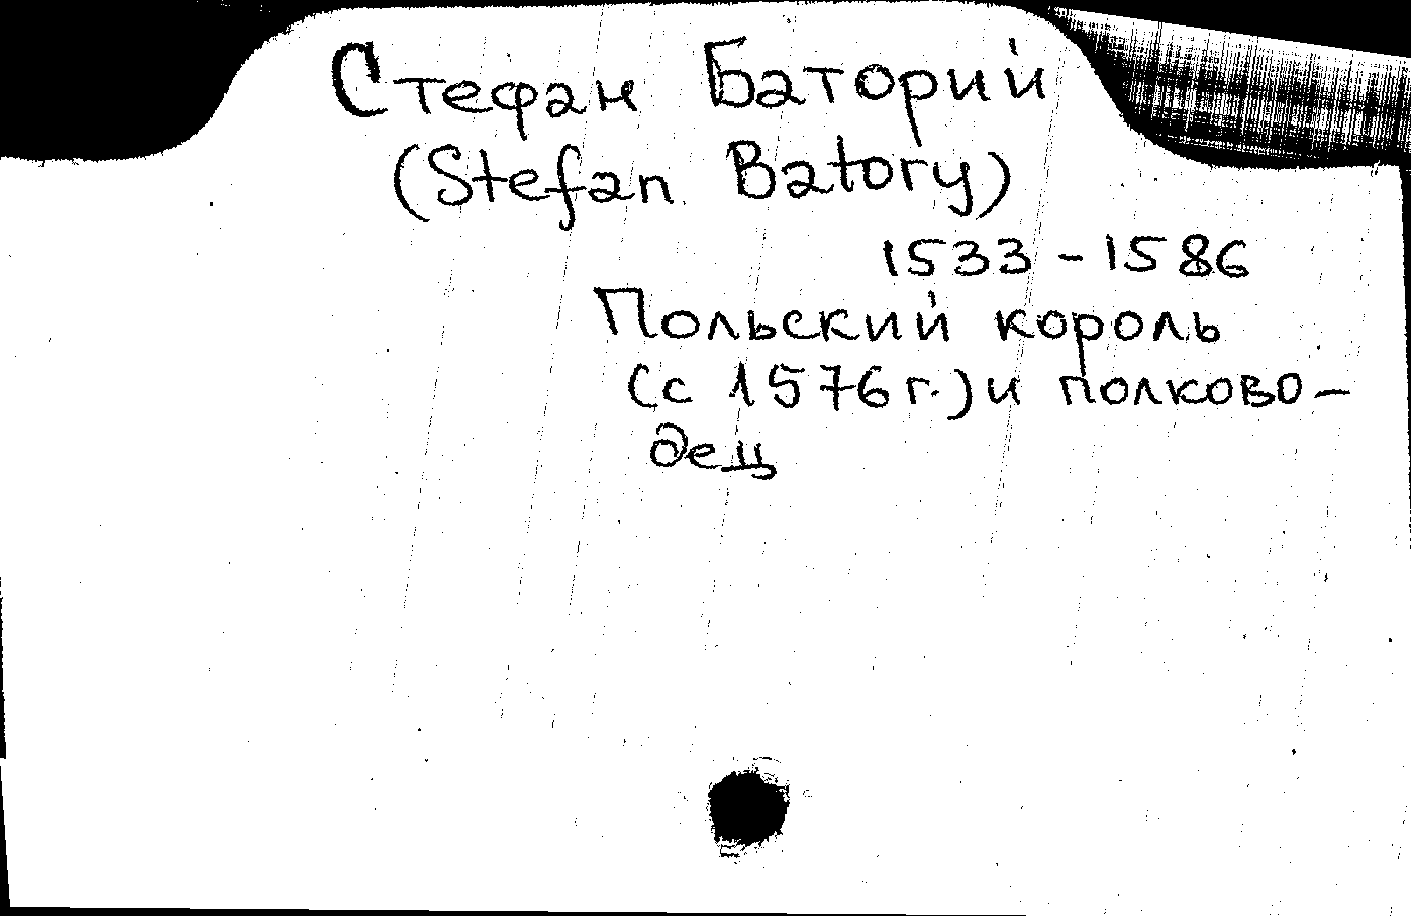 Стефан Баторий
(Stefan Batory)
1533 - 1586
Польский король
(с 1576 г.) и полково-
дец